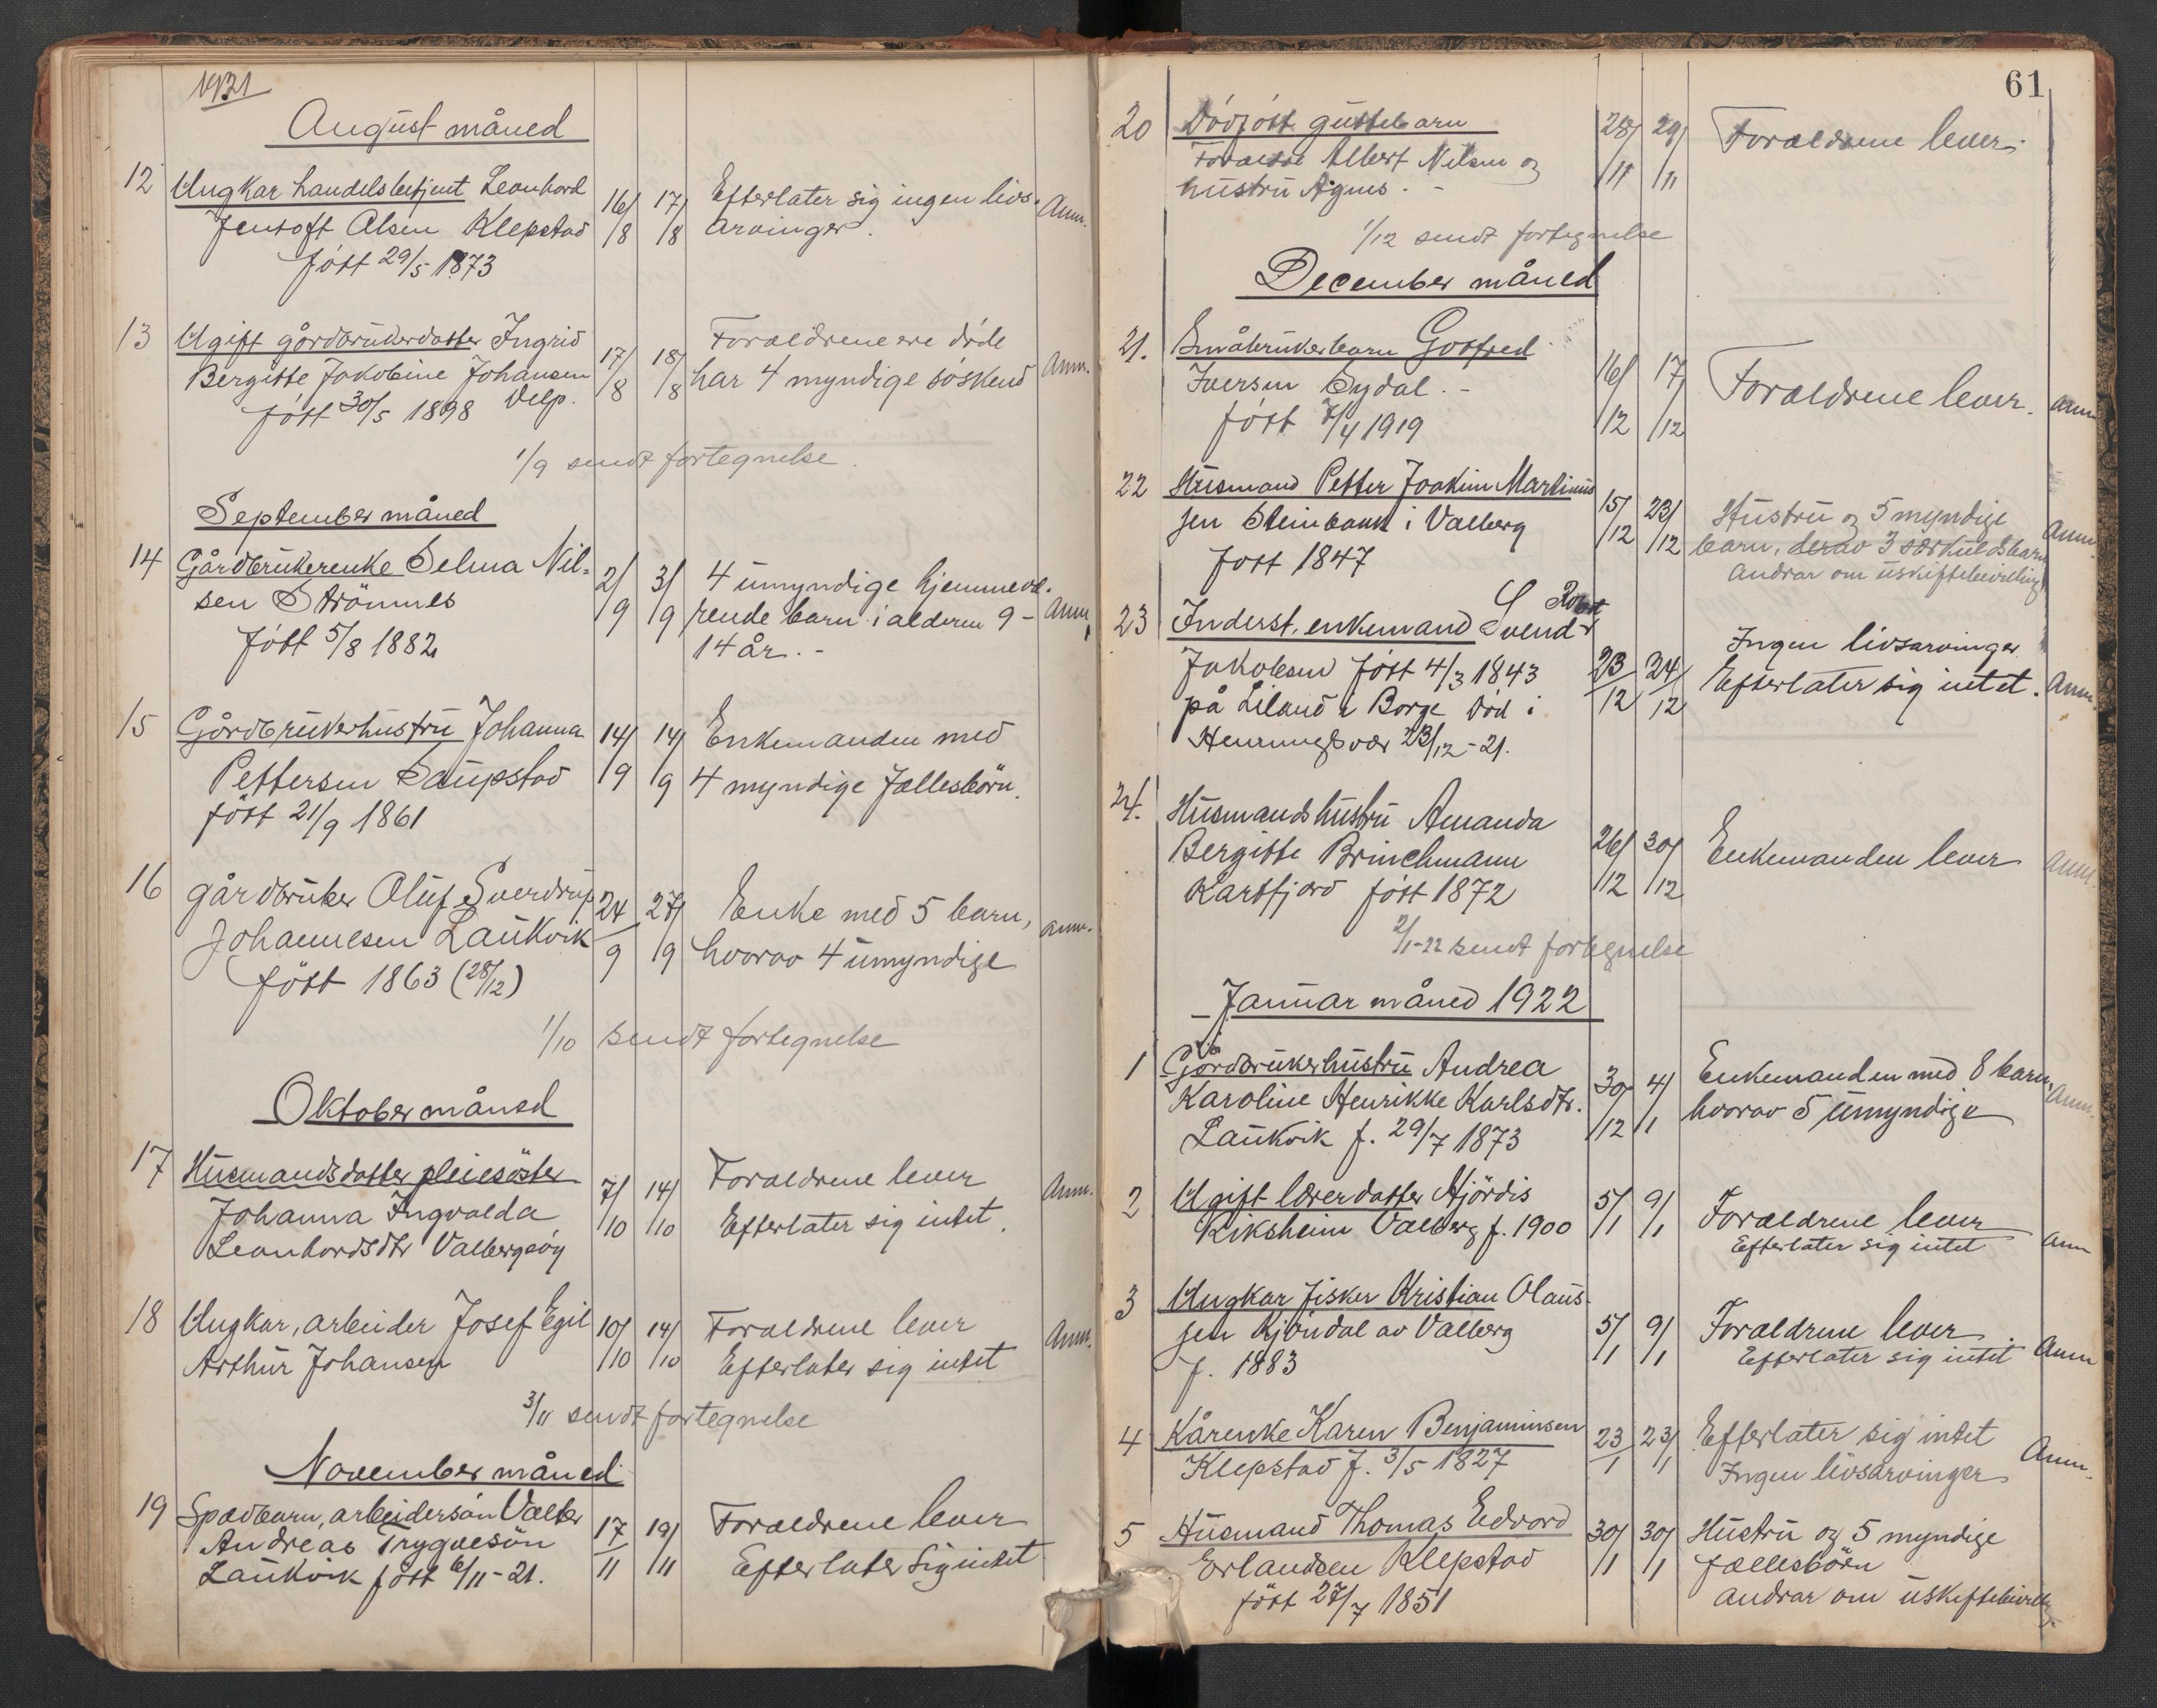 1921
August måned
12 Ungkar handelsbetjent Leonhard 16/8 17/8 Efterlater sig ingen livs- Anm.
Jentoft Olsen Klepstad arvinger.
født 29/5 1873
13 Ugift gårdbrukerdatter Ingrid 17/8 18/8 Forældrene ere døde Anm.
Bergitte Jakobine Johansen har 4 myndige søskend
født 30/5 1898 Delp.
1/9 sendt fortegnelse.
September måned
14 Gårdbrukerenke Selma Nil- 2/9 3/9 4 umyndige hjemmevæ- Anm.
sen Strømnes rende barn i alderen 9-
født 5/8 1882 14 år.-
15 Gårdbrukerhustru Johanna 14/9 14/9 Enkemanden med
Pettersen Saupstad 4 myndige fællesbörn.
født 21/9 1861
16 gårdbruker Oluf Sverdrup 24/9 27/9 Enke med 5 barn, anm.
Johannesen Laukvik hvorav 4 umyndige
født 1863 (28/12)
1/10 sendt fortegnelse
Oktober måned
17 Husmandsdatter pleiesöster 7/10 14/10 Forældrene lever Anm.
Johanna Ingvalda Efterlater sig intet.
Leonhardsdtr Valbergsöy
18 Ungkar, arbeider Josef Egil 10/10 14/10 Forældrene lever Anm.
Arthur Johansen Efterlater sig intet
3/11 sendt fortegnelse
November måned
19 Spædbarn, arbeidersön Valter 17/11 19/11 Forældrene lever
Andreas Trygvesön Efterlater sig intet
Laukvik født 6/11-21.
61
20 Dödfött guttebarn 28/11 29/11 Forældrene lever.
Forældre Albert Nilsen og
hustru Agnes.-
1/12 sendt fortegnelse
December måned
21. Småbrukerbarn Gotfred 16/12 17/12 Forældrene lever. anm
Iversen Sydal.-
født 7/4 1919
22 Husmand Petter Joakim Martinus 15/12 23/12 Hustru og 5 myndige Anm.
sen Steinbakk i Valberg barn, derav 3 særkuldsbarn
født 1847 Andrar om uskiftebevilling
23 Inderst. enkemand Svend Ingen livsarvinger
Jakobsen født 4/3 1843 23/12 24/12 Efterlater sig intet. Anm.
på Liland i Borge død i
Henningsvær 23/12-21.
24. Husmandshustru Amanda
Bergitte Brinchmann 26/12 30/12 Enkemanden lever Anm.
Kartfjord født 1872
2/1-22 sendt fortegnelse
Januar måned 1922
1 Gårdbrukerhustru Andrea 30/12 4/1 Enkemanden med 8 barn, Anm.
Karoline Henrikke Karlsdtr. hvorav 5 umyndige
Laukvik f. 29/7 1873
2 Ugift lærerdatter Hjördis 5/1 9/1 Forældrene lever
Riksheim Valberg f. 1900 Efterlater sig intet Anm
3 Ungkar fisker Kristian Olaus- 5/1 9/1 Forældrene lever.
sen Kjöndal av Valberg Efterlater sig intet Anm
f. 1883
4 Kårenke Karen Benjaminsen 23/1 23/1 Efterlater sig intet Anm.
Klepstad f. 3/5 1827 Ingen livsarvinger
5 Husmand Thomas Edvard 30/1 30/1 Hustru og 5 myndige
Erlandsen Klepstad fællesbörn
født 27/7 1851 andrar om uskiftebevillg.